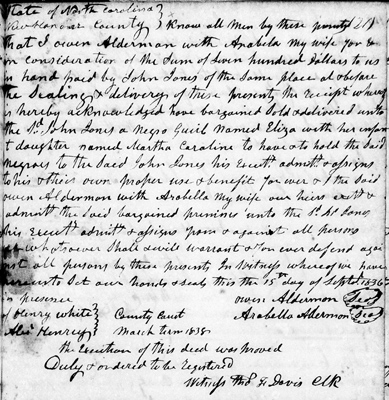 State of North Carolina}
New Hanover County } Know all Men by these
that I owen Alderman with Arabela My wife for &
in consideration of the Sum of seven hundred Dollars to us
in hand paid by John Jones of the Same place at & before
the Sealing & delivery of these presents, the Receipt where
is hereby acknowledged have bargained Sold & delivered unto
the Sd. John Jones a Negro Named Eliza with her
t daughter named Martha Caroline to have & to hold the Said
negroes to the Said John Jones his Excutrs admitrs & assigns
to his & their own proper use & benefit for ever & I the Said
owen Alderman with Arabella My wife our heirs
admitrs the Said bargained premises unto the Sd. Jones
his Excutrs admitrs & assigns from & against all persons
whatsoever Shall & will warrant & for ever defend aga
nst all persons by these presents In Witness whereof we have
hereunto Set our Hands & Seals this the 15th day of Septr 1836
in presence owen Alderman (Seal)
of Henry White} County Court Arabella Alderman (Seal)
Henry} March term 1838
the Execution of this deed was proved
Duly & ordered to be registered
Witness Thos. F. Davis Clk